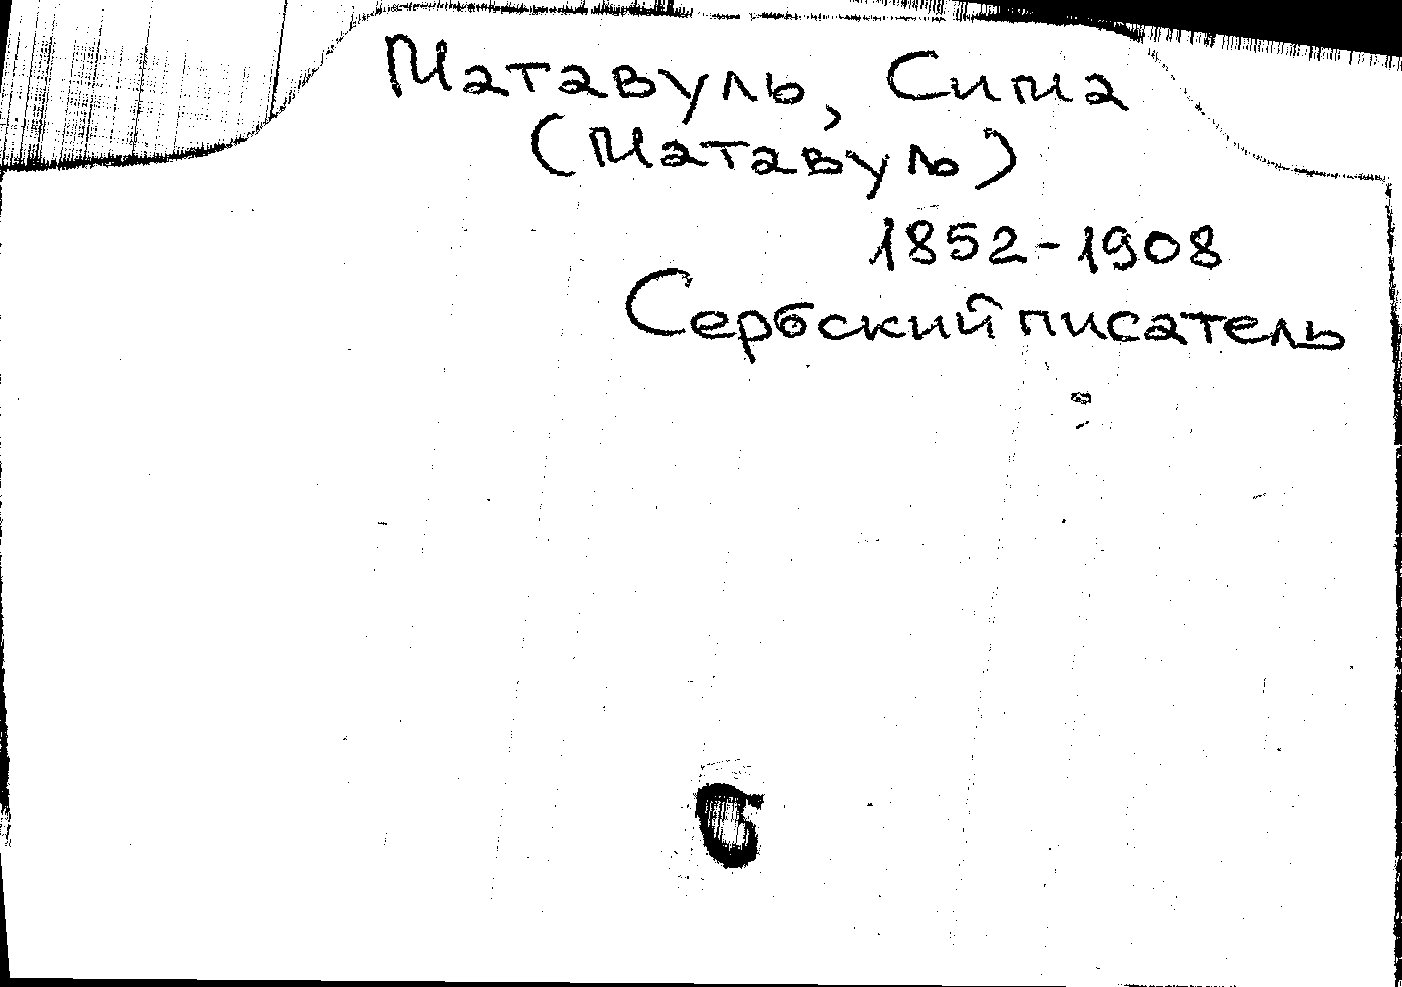 Матавуль, Сима
(Матавуль)
1852-1908
Сербский писатель